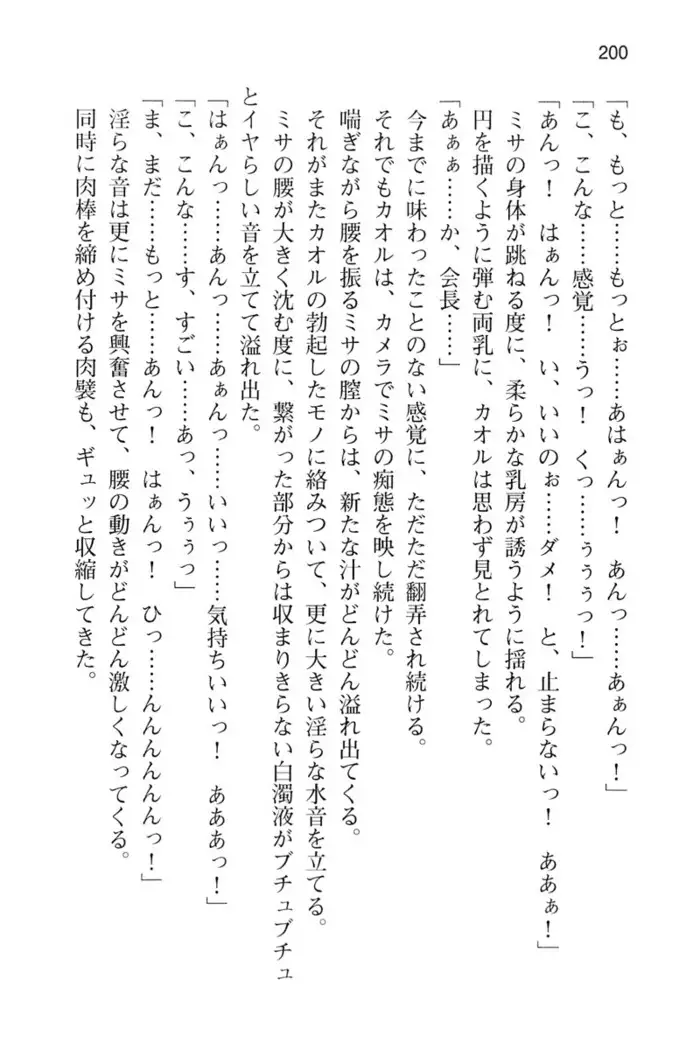 200
「も、もっと……もっとぉ……あはぁんっ！　あんっ……あぁんっ！」
「こ、こんな……感覚……うっ！　くっ……ぅぅぅっ！」
「あんっ！　はぁんっ！　い、いいのぉ……ダメ！　と、止まらないっ！　ああぁ！」
ミサの身体が跳ねる度に、柔らかな乳房が誘うように揺れる。
円を描くように弾む両乳に、カオルは思わず見とれてしまった。
「あぁぁ……か、会長……」
今までに味わったことのない感覚に、ただただ翻弄され続ける。
それでもカオルは、カメラでミサの痴態を映し続けた。
喘ぎながら腰を振るミサの膣からは、新たな汁がどんどん溢れ出てくる。
それがまたカオルの勃起したモノに絡みついて、更に大きい淫らな水音を立てる。
ミサの腰が大きく沈む度に、繋がった部分からは収まりきらない白濁液がブチュブチュ
とイヤらしい音を立てて溢れ出た。
「はぁんっ……あんっ……あぁんっ……いいっ……気持ちいいっ！　あああっ！」
「こ、こんな……す、すごい……あっ、うぅぅっ」
「ま、まだ……もっと……あんっ！　はぁんっ！　ひっ……んんんんんんっ！」
淫らな音は更にミサを興奮させて、腰の動きがどんどん激しくなってくる。
同時に肉棒を締め付ける肉襞も、ギュッと収縮してきた。